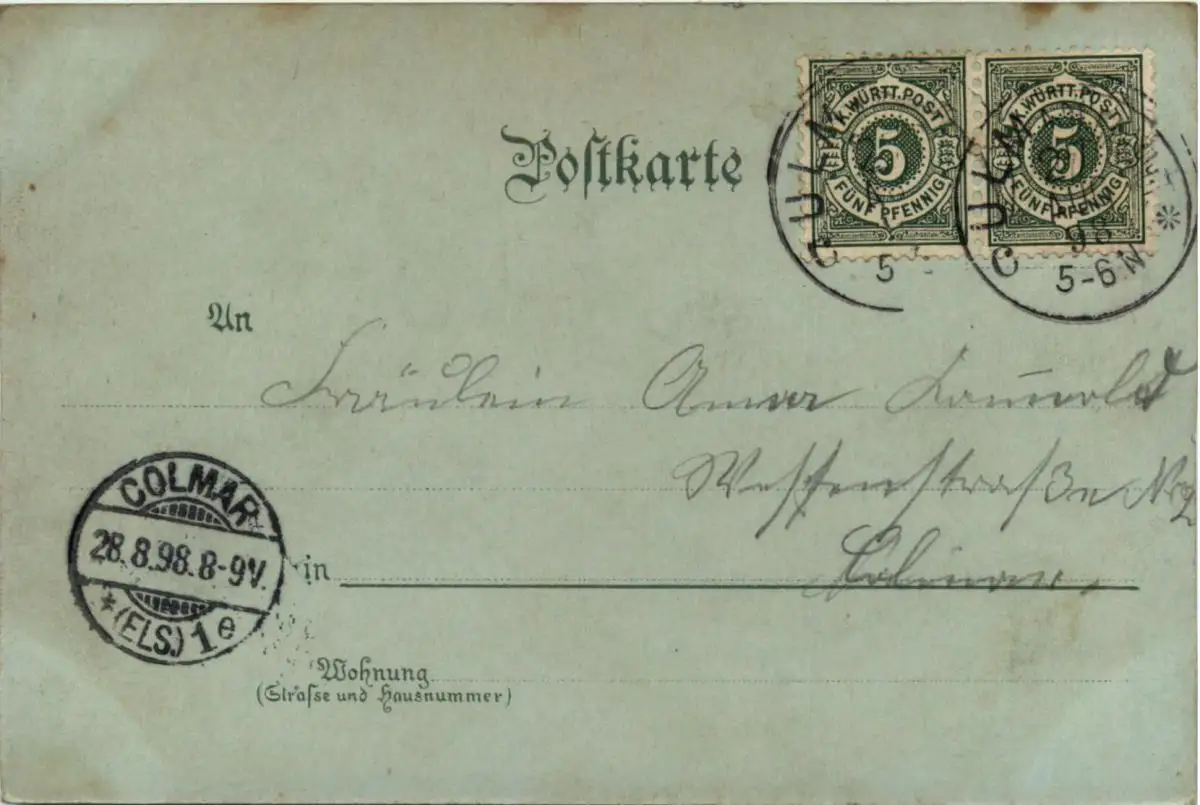 Postkarte
K. WÜRTT. POST
5
FÜNF PFENNIG
K. WÜRTT. POST
5
FÜNF PFENNIG
ULM
5
ULM
98
5-6 N
An
Fräulein
COLMAR
28.8.98.8-9V.
* (ELS.) 1 e
in
Colmar.
Wohnung
(Strasse und Hausnummer)